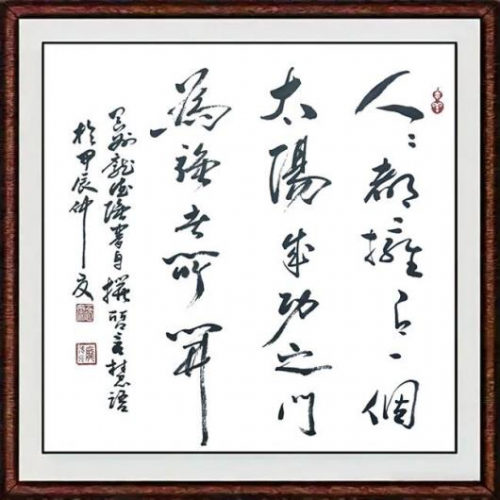 人人都擁有一個
太陽成功之門
為強者所開
龍書自撰言慧語
於甲辰仲夏